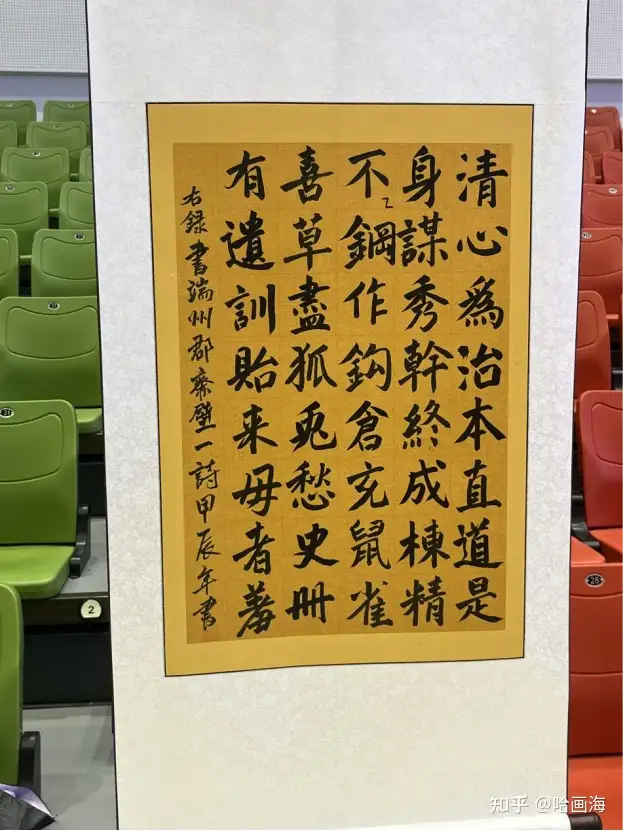 清心爲治本直道是
身謀秀幹終成棟精
不鋼作鈎倉充鼠雀
喜草盡狐兎愁史冊
有遺訓貽来毋者羞
右録書端州郡齋壁一詩甲辰年書
2
28
知乎 @哈画海